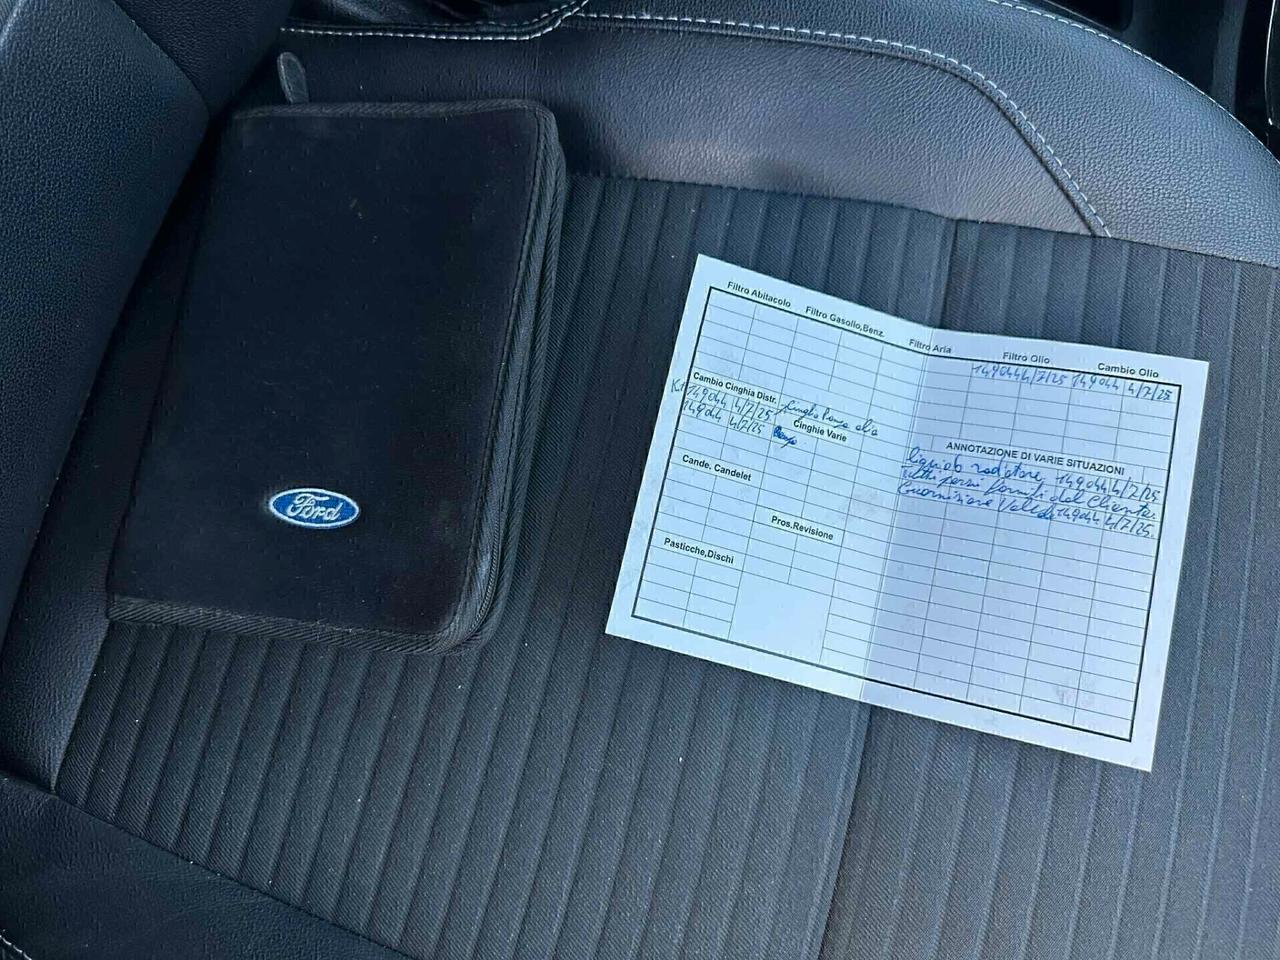 Ford
Filtro Abitacolo Filtro Gasolio,Benz. Filtro Aria Filtro Olio Cambio Olio
149044 4/7/25 149044 4/7/25
Cambio Cinghia Distr.
149044 4/7/25
149044 4/7/25
Cinghie Varie
ANNOTAZIONE DI VARIE SITUAZIONI
radiatore, 149044 4/7/25
forniti dal Cliente
149044 4/7/25.
Cande. Candelet
Pros.Revisione
Pasticche,Dischi